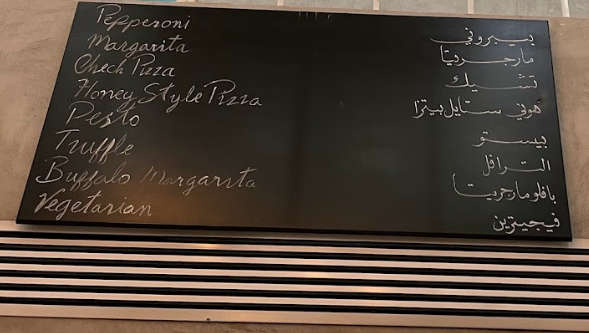 Pepperoni
بيبروني
Margarita
مارجريتا
Check Pizza
تشيك
Honey Style Pizza
هوني ستايل بيتزا
Pesto
بيستو
Truffle
الترافل
Buffalo Margarita
بافلو مارجريتا
Vegetarian
فيجيترين